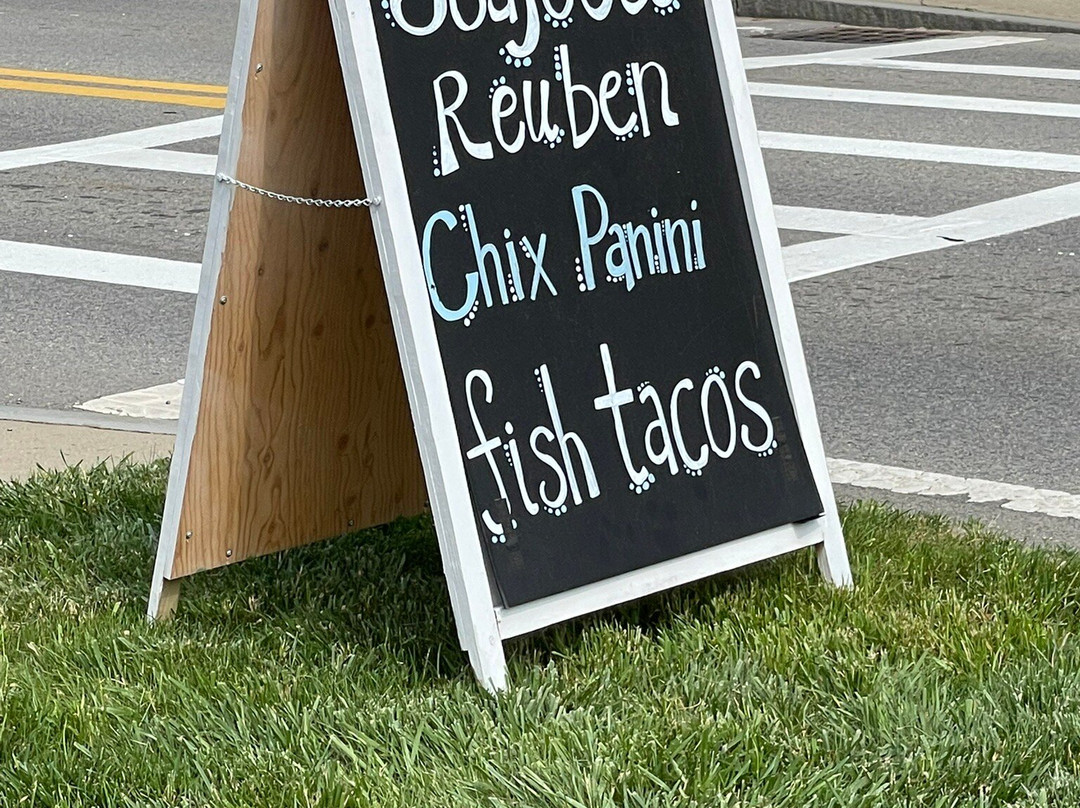 Reuben
Chix Panini
fish tacos